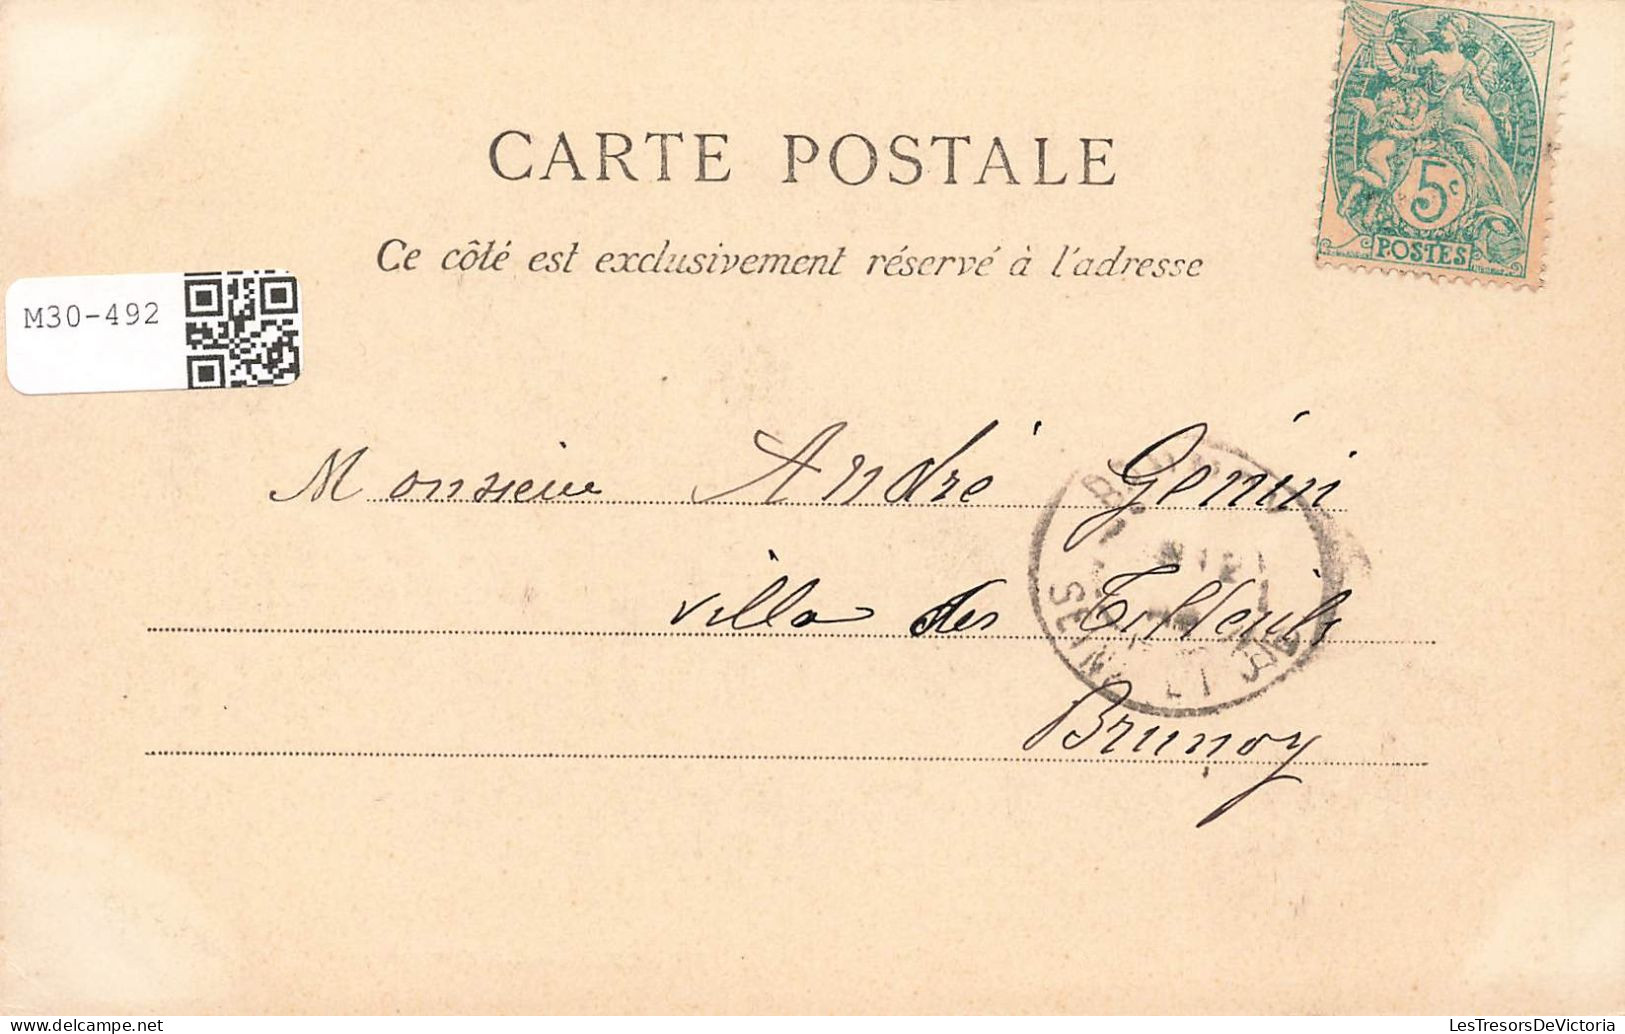 CARTE POSTALE
Ce côté est exclusivement réservé à l'adresse
5c
POSTES
M30-492
Monsieur André Génin
villa des Tilleuls
Brunoy
SEINE ET
LesTresorsDeVictoria
LesTresorsDeVictoria.com